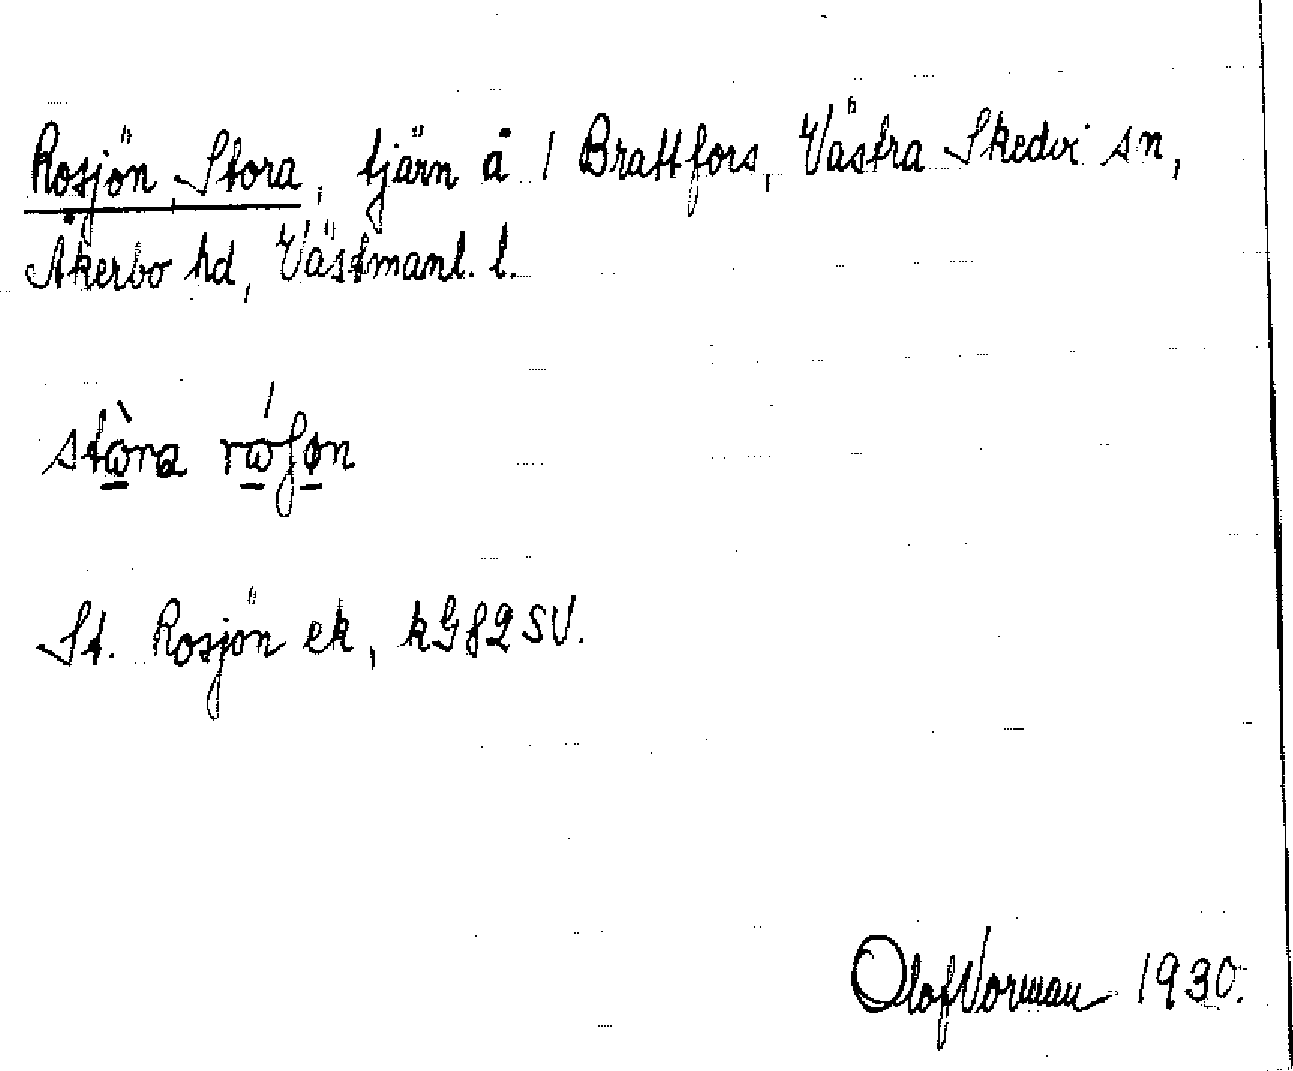 Rosjön, Stora, tjärn å 1 Brattfors, Västra Skedvi sn,
Åkerbo hd, Västmanl. l.
stὼ̲ra rώ̲ʃø̲n
St. Rosjön ek, kG82SV.
Olof Norman 1930.